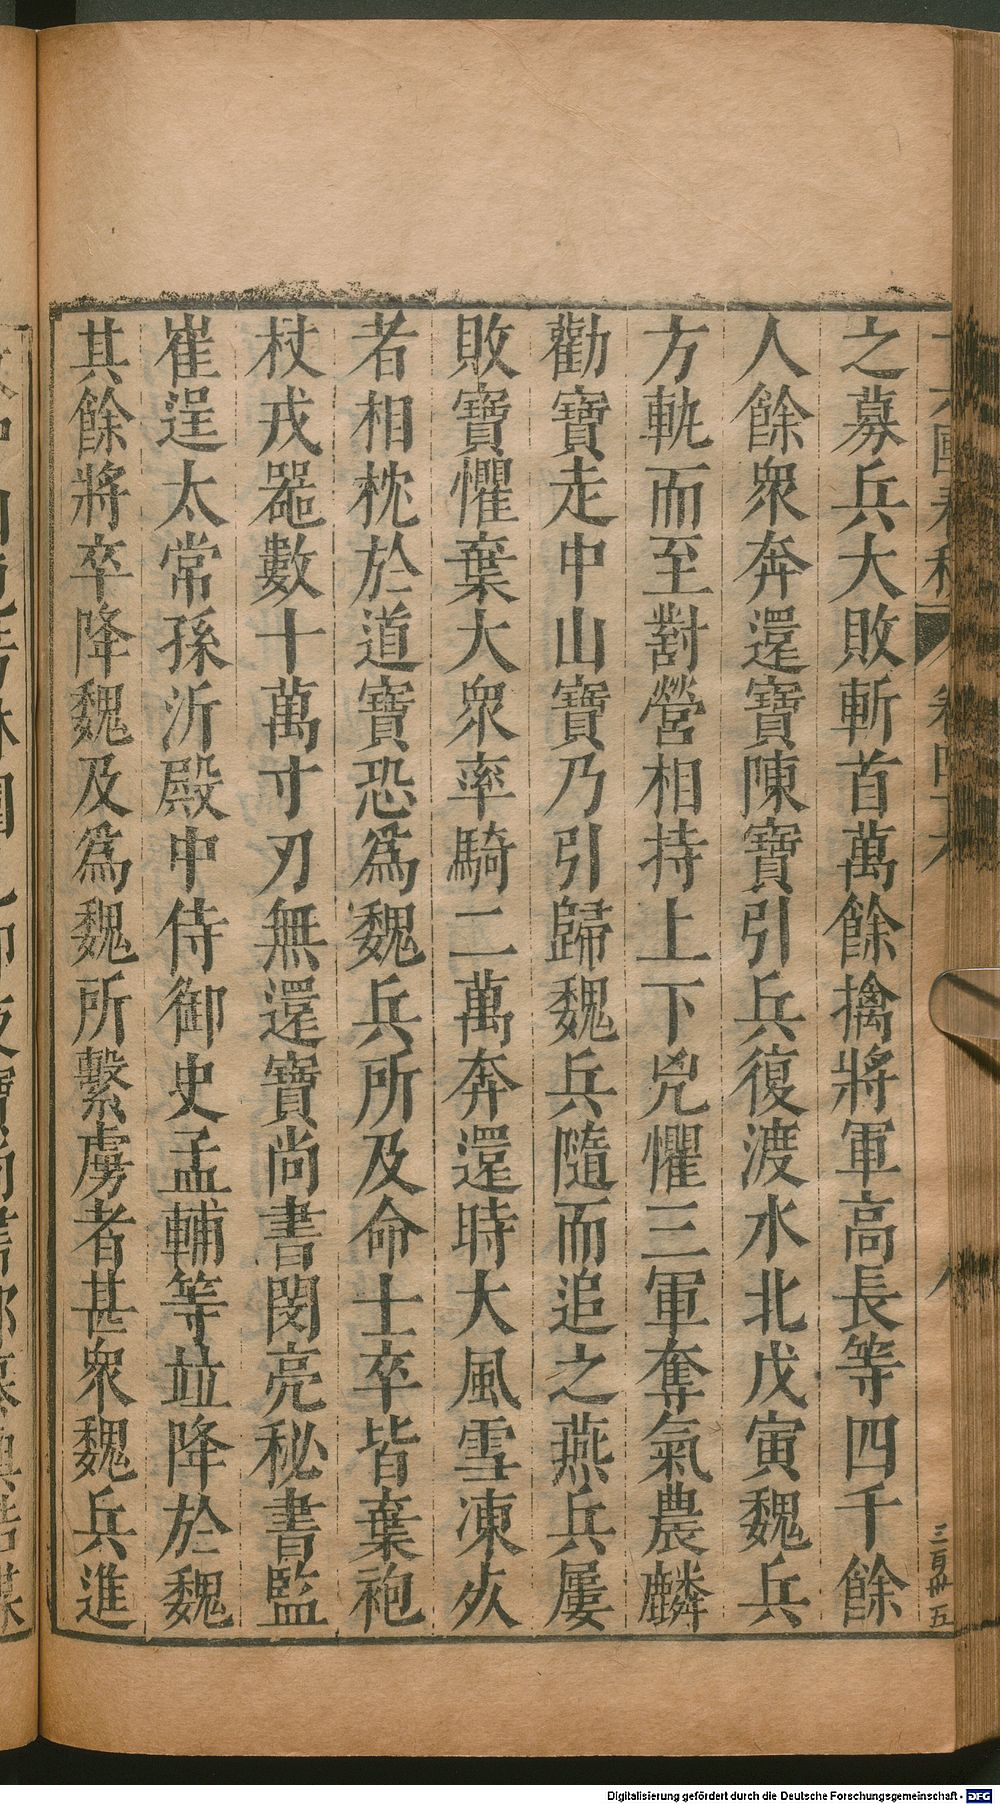 之募兵大敗斬首萬餘擒將軍高長等四千餘
人餘衆奔還寶陳寶引兵復渡水北戊寅魏兵
方軌而至對營相持上下兇懼三軍奪氣農麟
勸寶走中山寶乃引歸魏兵隨而追之燕兵屢
敗寶懼棄大衆率騎二萬奔還時大風雪凍𣦸
者相枕於道寶恐爲魏兵所及命士卒皆棄袍
杖戎器數十萬寸刃無還寶尚書閔亮秘書監
崔逞太常孫沂殿中侍御史孟輔等竝降於魏
其餘將卒降魏及爲魏所繫虜者甚衆魏兵進
三百卌五
Digitalisierung gefördert durch die Deutsche Forschungsgemeinschaft - DFG